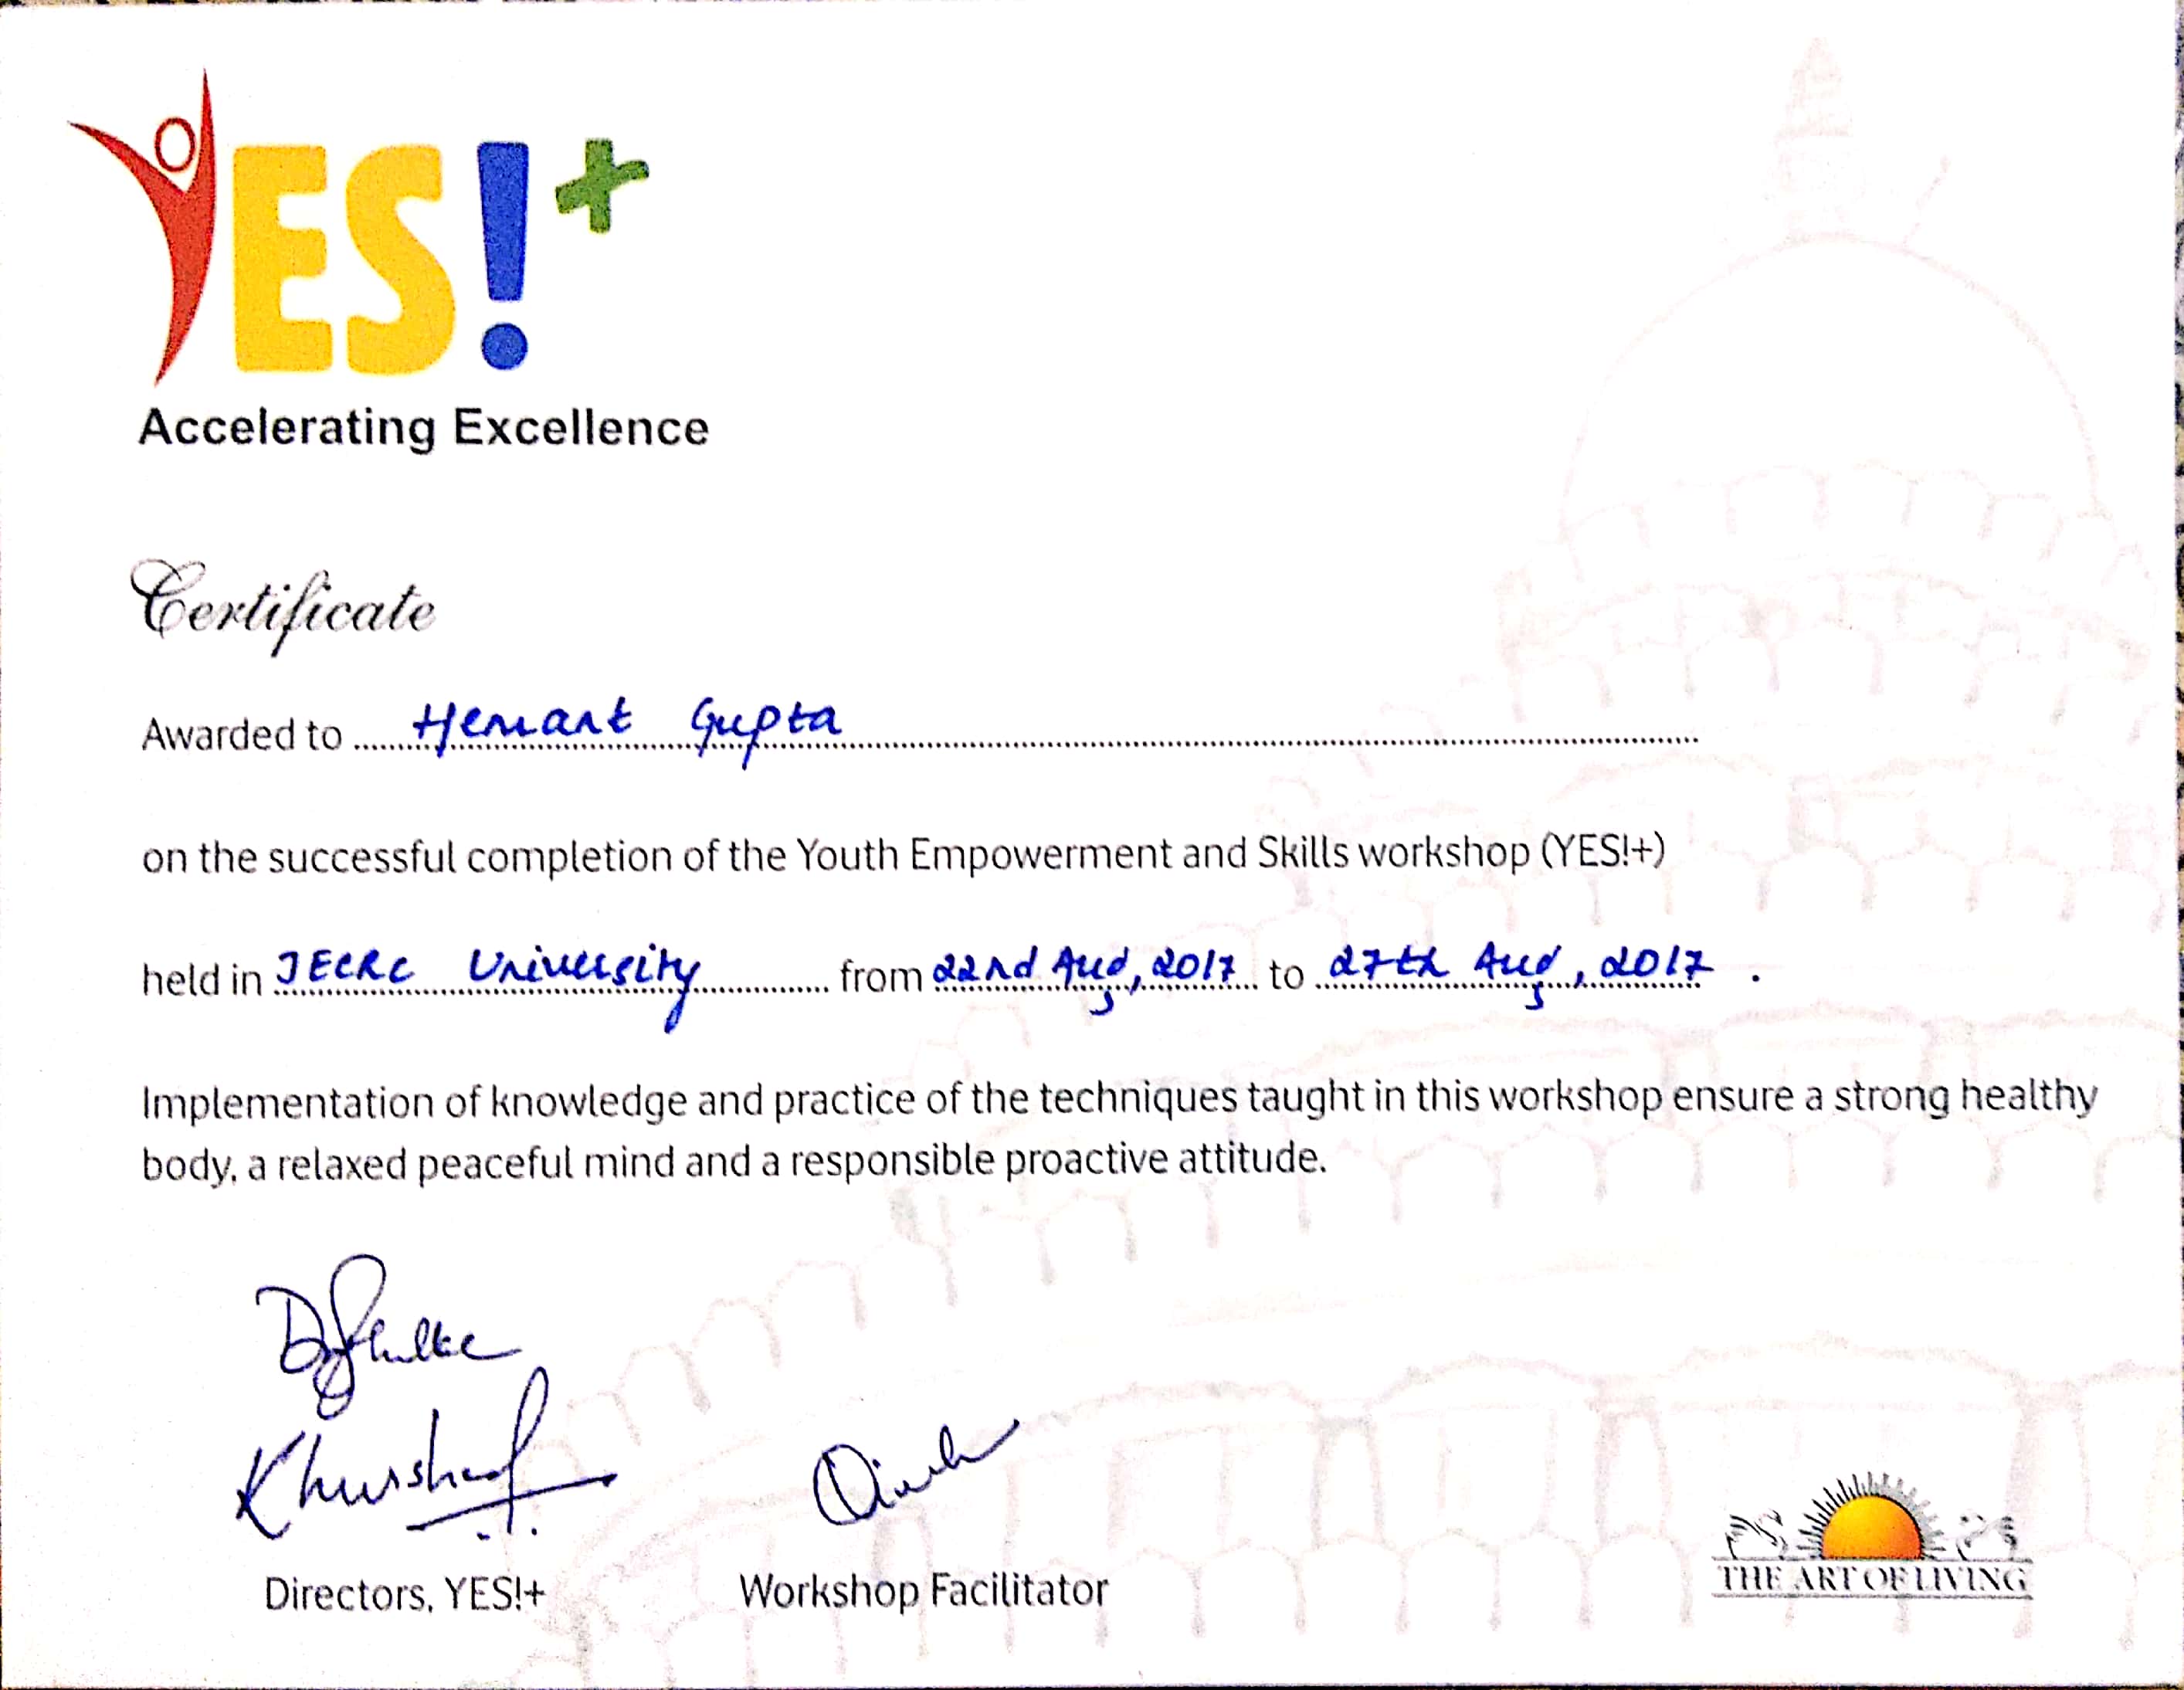 YES!+
Accelerating Excellence
Certificate
Awarded to Hemant Gupta
on the successful completion of the Youth Empowerment and Skills workshop (YES!+)
held in JECRC University from 22nd Aug, 2017 to 27th Aug, 2017 .
Implementation of knowledge and practice of the techniques taught in this workshop ensure a strong healthy
body, a relaxed peaceful mind and a responsible proactive attitude.
Khurshed
Directors, YES!+
Workshop Facilitator
THE ART OF LIVING